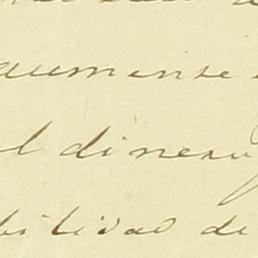 aumente
el dinero
bilidad de